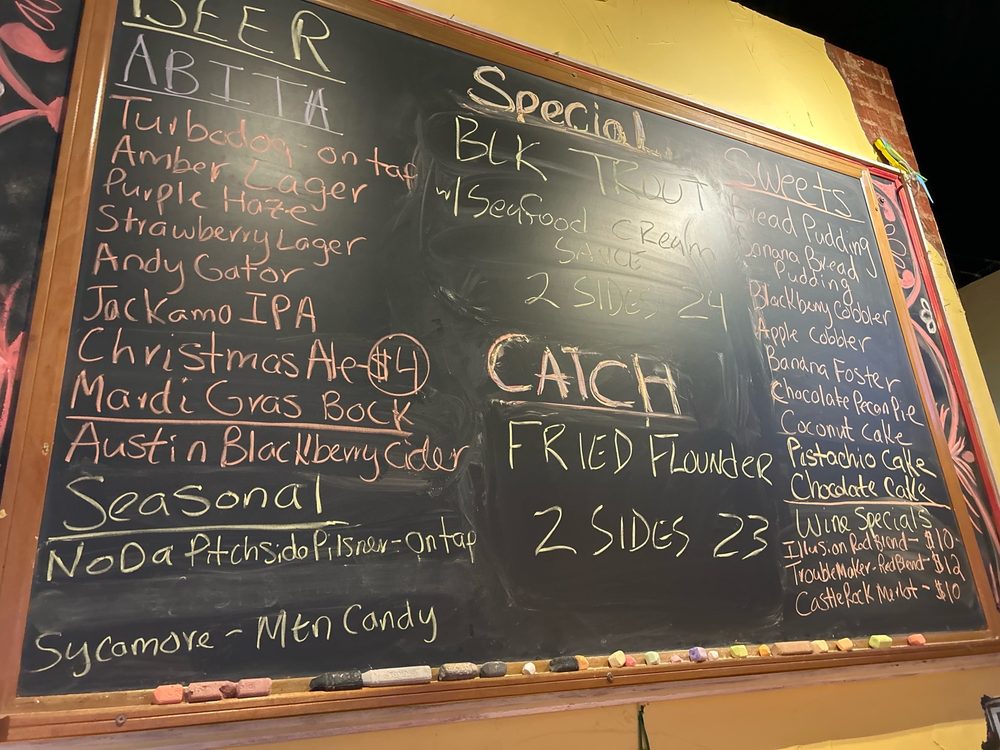 BEER
ABITA
Turbodog - on tap
Amber Lager
Purple Haze
Strawberry Lager
Andy Gator
Jackamo IPA
Christmas Ale - $4
Mardi Gras Bock
Austin Blackberry Cider
Seasonal
NoDa Pitchside Pilsner - On tap
Sycamore - Mtn Candy
Special
BLK TROUT
w/ Seafood CReam
SAUCE
2 SIDES 24
CATCH
FRIED FLOUNDER
2 SIDES 23
Sweets
Bread Pudding
Banana Bread
Pudding
Blackberry Cobbler
Apple Cobbler
Banana Foster
Chocolate Pecan Pie
Coconut Cake
Pistachio Cake
Chocolate Cake
Wine Specials
Illusion Red Blend - $10
TroubleMaker - Red Blend - $12
Castle Rock Merlot - $10